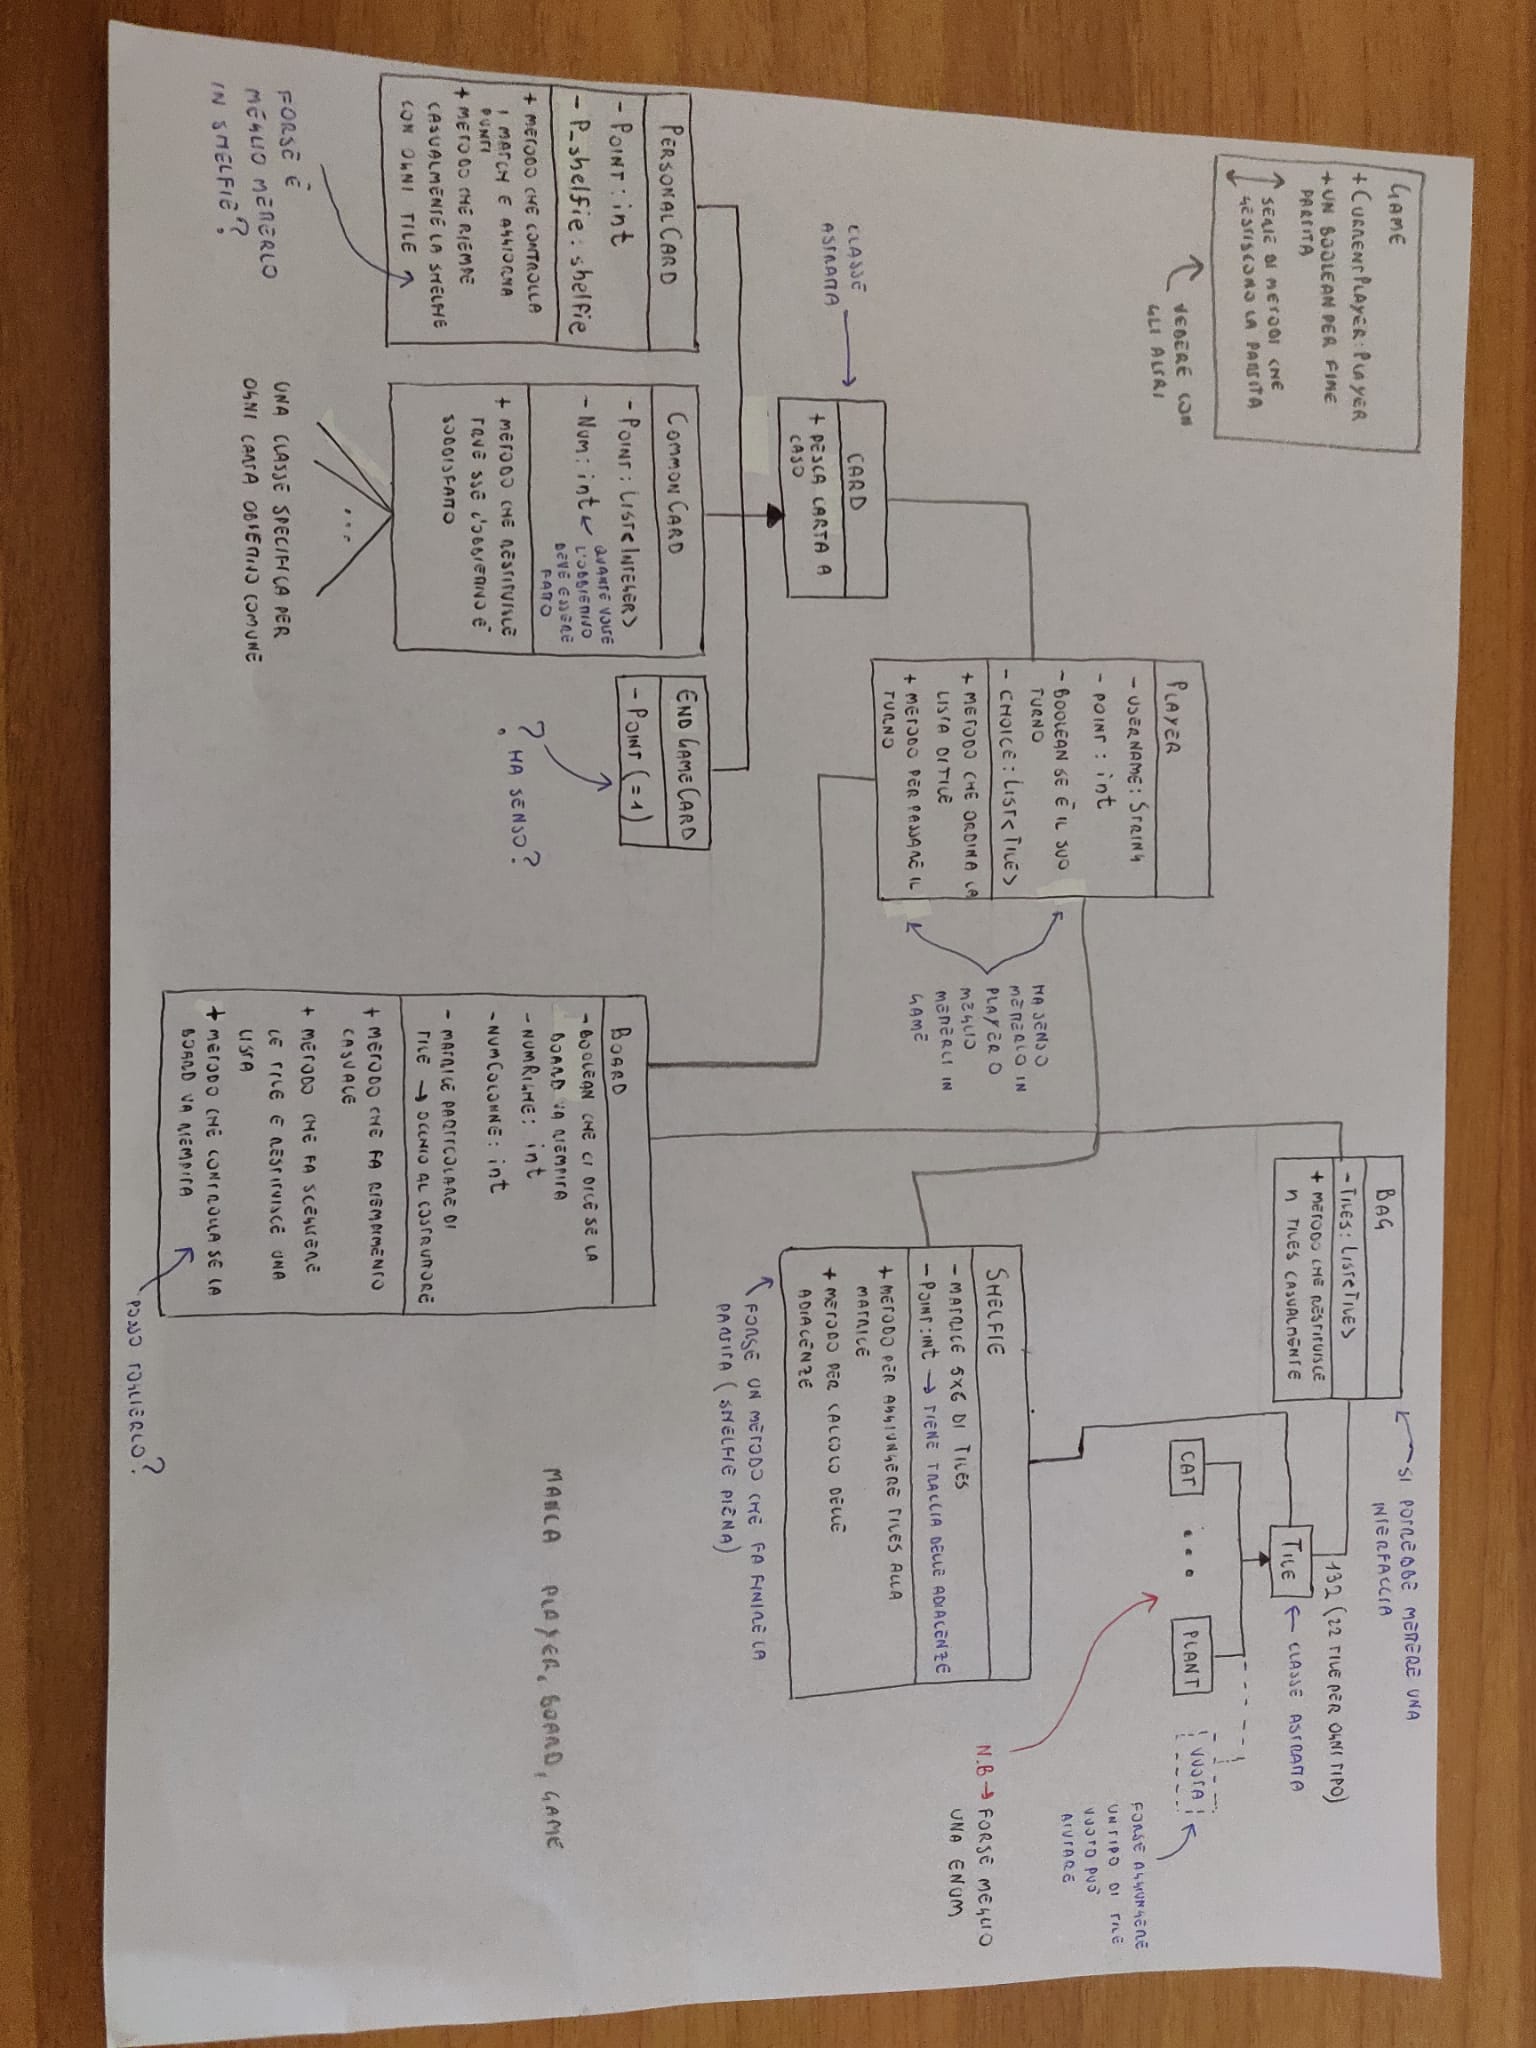 GAME
+ CURRENTPLAYER: PLAYER
+ UN BOOLEAN PER FINE
PARTITA
SERIE DI METODI CHE
GESTISCONO LA PARTITA
VEDERE CON
GLI ALTRI
BAG
- TILES: LIST<TILES>
+ METODO CHE RESTITUISCE
n TILES CASUALMENTE
SI POTREBBE METTERE UNA
INTERFACCIA
132 (22 TILE PER OGNI TIPO)
TILE
CLASSE ASTRATTA
CAT
...
PLANT
VUOTA
FORSE AGGIUNGERE
UN TIPO DI TILE
VUOTO PUÒ
AIUTARE
N.B → FORSE MEGLIO
UNA ENUM
PLAYER
- USERNAME: STRING
- POINT: int
- BOOLEAN SE È IL SUO
TURNO
- CHOICE: LIST<TILE>
+ METODO CHE ORDINA LA
LISTA DI TILE
+ METODO PER PASSARE IL
TURNO
HA SENSO
METTERLO IN
PLAYER O
MEGLIO
METTERLI IN
GAME
SHELFIE
- MATRICE 5x6 DI TILES
- POINT: int → TIENE TRACCIA DELLE ADIACENZE
+ METODO PER AGGIUNGERE TILES ALLA
MATRICE
+ METODO PER CALCOLO DELLE
ADIACENZE
FORSE UN METODO CHE FA FINIRE LA
PARTITA (SHELFIE PIENA)
CLASSE
ASTRATTA
CARD
+ PESCA CARTA A
CASO
PERSONALCARD
- POINT: int
- P_shelfie: shelfie
+ METODO CHE CONTROLLA
I MATCH E AGGIORNA
PUNTI
+ METODO CHE RIEMPE
CASUALMENTE LA SHELFIE
CON OGNI TILE
FORSE È
MEGLIO METTERLO
IN SHELFIE?
COMMONCARD
- POINT: LIST<INTEGER>
- NUM: int ← QUANTE VOLTE
L'OBBIETTIVO
DEVE ESSERE
FATTO
+ METODO CHE RESTITUISCE
TRUE SSE L'OBBIETTIVO È
SODDISFATTO
...
UNA CLASSE SPECIFICA PER
OGNI CARTA OBIETTIVO COMUNE
END GAMECARD
- POINT (=1)
? HA SENSO?
BOARD
- BOOLEAN CHE CI DICE SE LA
BOARD VA RIEMPITA
- NUMRIGHE: int
- NUMCOLONNE: int
- MATRICE PARTICOLARE DI
TILE → OCCHIO AL COSTRUTTORE
+ METODO CHE FA RIEMPIMENTO
CASUALE
+ METODO CHE FA SCEGLIERE
LE TILE E RESTITUISCE UNA
LISTA
+ METODO CHE CONTROLLA SE LA
BOARD VA RIEMPITA
POSSO TOGLIERLO?
MANCA PLAYER, BOARD, GAME